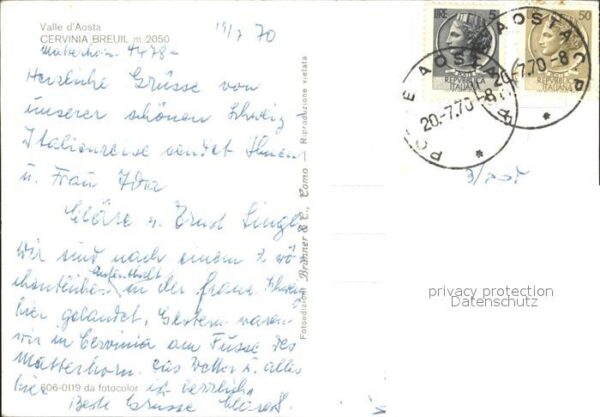 Valle d'Aosta
CERVINIA BREUIL m. 2050
19/7 70
Matterhorn 4478-
Herzliche Grüsse von
unserer schönen Schweiz
Italienreise sendet Ihnen
u. Frau Ida
Cläre u. Ernst
Wir sind nach einem 2 wö
chentlichen Aufenthalt in der franz. Schweiz
hier gelandet, Gestern waren
wir in Cervinia am Fusse des
Matterhorn. Das Wetter u. alles
hier ist herrlich.
606-0119 da fotocolor
Beste Grüsse Cläre
Fotoedizioni Brunner & C., Como - Riproduzione vietata
LIRE 5
50
REPUBBLICA ITALIANA
REPUBBLICA ITALIANA
AOSTA
20.-7.70.-8
AOSTA C.P.
20.-7.70.-8
privacy protection
Datenschutz